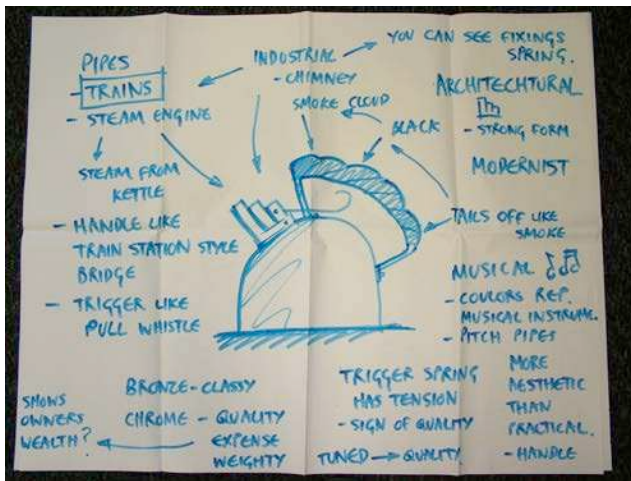 PIPES
- TRAINS
- STEAM ENGINE
STEAM FROM
KETTLE
- HANDLE LIKE
TRAIN STATION STYLE
BRIDGE
- TRIGGER LIKE
PULL WHISTLE
INDUSTRIAL
- CHIMNEY
SMOKE CLOUD
BLACK
YOU CAN SEE FIXINGS
SPRING.
ARCHITECHTURAL
- STRONG FORM
MODERNIST
TAILS OFF LIKE
SMOKE
MUSICAL
- COULORS REP.
MUSICAL INSTRUME.
- PITCH PIPES
MORE
AESTHETIC
THAN
PRACTICAL.
- HANDLE
TRIGGER SPRING
HAS TENSION
- SIGN OF QUALITY
TUNED → QUALITY
BRONZE - CLASSY
CHROME - QUALITY
EXPENSE
WEIGHTY
SHOWS
OWNERS
WEALTH?